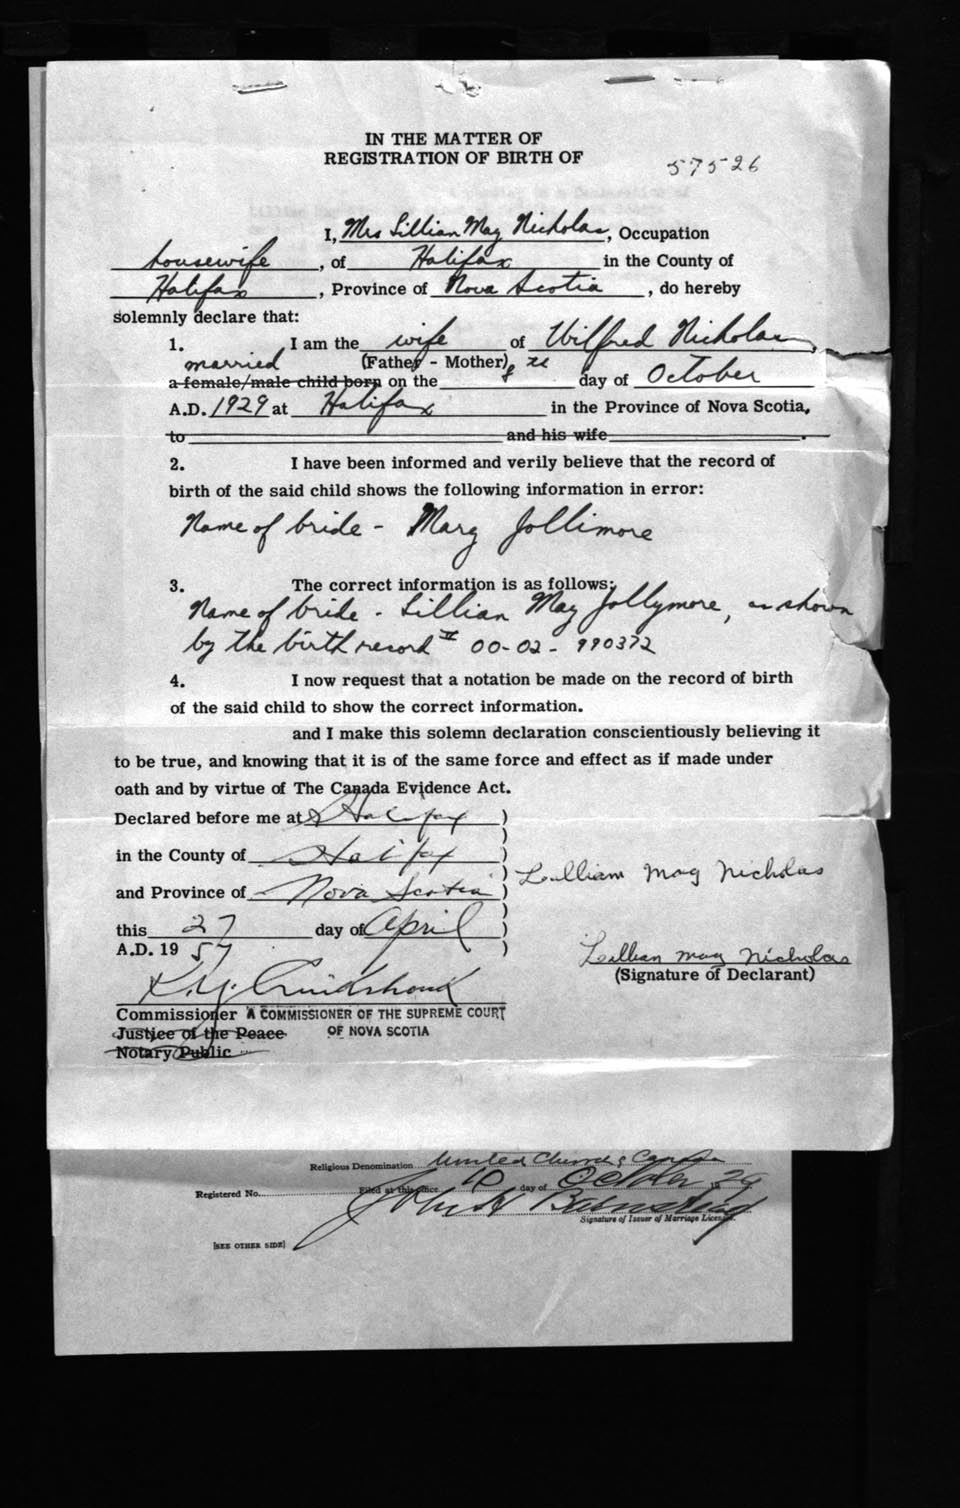 IN THE MATTER OF
REGISTRATION OF BIRTH OF
57526
I, Mrs Lillian May Nicholas, Occupation
housewife, of Halifax in the County of
Halifax, Province of Nova Scotia, do hereby
solemnly declare that:
1. I am the wife of Wilfred Nicholas,
married (Father - Mother)
a female/male child born on the day of October
A.D. 1929 at Halifax in the Province of Nova Scotia,
to and his wife .
2. I have been informed and verily believe that the record of
birth of the said child shows the following information in error:
Name of bride - Mary Jollimore
3. The correct information is as follows:
Name of bride - Lillian May Jollymore, as shown
by the birth record 00-02-990372
4. I now request that a notation be made on the record of birth
of the said child to show the correct information.
and I make this solemn declaration conscientiously believing it
to be true, and knowing that it is of the same force and effect as if made under
oath and by virtue of The Canada Evidence Act.
Declared before me at Halifax )
in the County of Halifax )
and Province of Nova Scotia )
Lilliam May Nicholas
this 27 day of April )
A.D. 19 57 )
Lillian May Nicholas
(Signature of Declarant)
Commissioner A COMMISSIONER OF THE SUPREME COURT
Justice of the Peace OF NOVA SCOTIA
Notary Public
Religious Denomination United Church of Canada
Registered No. Filed at this office 10 day of October 1929
John H
Signature of Issuer of Marriage License.
[SEE OTHER SIDE]